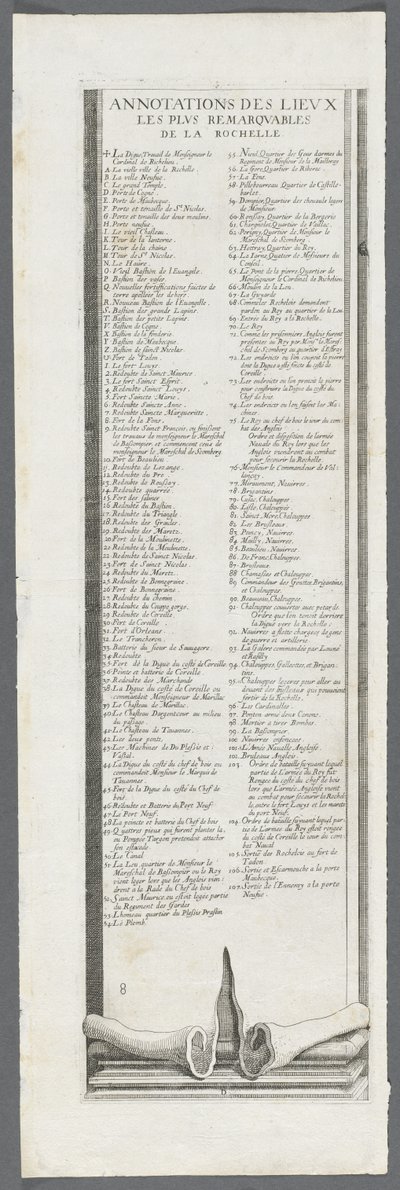 ANNOTATIONS DES LIEVX
LES PLVS REMARQVABLES
DE LA ROCHELLE.
La Digue, Trauail de Monseigneur le
Cardinal de Richelieu.
A. La vielle ville de la Rochelle.
B. La ville Neufue.
C. Le grand Temple.
D. Porte de Cogne.
E. Porte de Maubecque.
F. Porte et tenaille de St. Nicolas.
G. Porte et tenaille des deux moulins.
H. Porte neufue
I. Le vieil Chasteau.
K. Tour de la lanterne.
L. Tour de la chaine
M. Tour de St. Nicolas.
N. Le Haure.
O. Vieil Bastion de l'Euangile.
P. Bastion des vases
Q. Nouuelles fortiffications faictes de
terre apellees les dehors
R. Nouueau Bastion de l'Euangille
S. Bastion des grands Lapins
T. Bastion des petits Lapins.
V. Bastion de Cogne.
X. Bastion de la fonderie
Y. Bastion de Maubecque.
Z. Bastion de sainct Nicolas
Fort de Tadon
1. Le fort Louys
2. Redoubte de Sainct Maurice
3. Le fort Sainct Esprit
4. Redoubte Sainct Louys.
5. Fort Saincte Marie.
6. Redoubte Saincte Anne.
7. Redoubte Saincte Margueritte.
8. Fort de la Fons.
9. Redoubte Sainct Francois, ou finissent
les trauaux de monseigneur le Mareschal
de Bassompier, et commencent ceux de
monseigneur le Mareschal de Scomberg
10. Fort de Beaulieu
11. Redoubte de Lozange.
12. Redoubte du Pre
13. Redoubte de Ronsay.
14. Redoubte quarree.
15. Fort des salines
16. Redoubte du Bastion
17. Redoubte du Triangle
18. Redoubte des Gardes.
19. Redoubte des Marets.
20. Fort de la Moulinette.
21. Redoubte de la Moulinette.
22. Redoubte de Sainct Nicolas
23. Fort de Sainct Nicolas
24. Redoubte du Marets.
25. Redoubte de Bonnegraine.
26. Fort de Bonnegraine.
27. Redoubte du Chemin
28. Redoubte du Couppe gorge.
29. Redoubte de Coreille
30. Fort de Coreille
31. Fort d'Orleans.
32. Le Trancheron
33. Batterie du sieur de Sauuegere
34. Redoubte
35. Fort de la Digue du costé de Coreille
36. Pointe et batterie de Coreille.
37. Redoubte des Marchands
38. La Digue du costé de Coreille ou
commandoit Monseigneur de Marillac
39. Le Chasteau de Marillac.
40. Le Chasteau Dargentceur au milieu
du passage
41. Le Chasteau de Tauannes.
42. Les deux ponts.
43. Les Machines de Du Plessis et
Vastal.
44. La Digue du costé du chef de bois ou
commandoit, Monsieur le Marquis de
Tauannes.
45. Fort de la Digue du costé du Chef de
bois
46. Redoubte et Batterie du Port Neuf
47. Le Port Neuf
48. La poincte et batterie du Chef de bois
49. Quattres pieux qui furent plantes la,
ou Pompee Targon pretendoit attacher
son estacade.
50. Le Canal
51. La Leu quartier de Monsieur le
Mareschal de Bassompier ou le Roy
vient loger lors que les Anglois vin
drent a la Rade du Chef de bois
52. Sainct Maurice ou estoit logee partie
du Regiment des Gardes
53. Lhomeau quartier du Plessis Praslin
54. Le Plomb.
55. Nieul, Quartier des Gens darmes du
Regiment de Monsieur de la Meilleray
56. La Gore, Quartier de Riberac
57. La Tens.
58. Pilleboureau, Quartier de Castille
barlet.
59. Dompier, Quartier des cheuaulx legers
de Monsieur.
60. Ronssay, Quartier de la Bergerie
61. Chagnolet, Quartier de Vaillac.
62. Perigny, Quartier de Monsieur le
Mareschal de Scomberg
63. Hestray, Quartier du Roy
64. La Iarne, Quatier de Messieurs du
Conseil.
65. Le Pont de la pierre, Quartier de
Monseigneur le Cardinal de Richelieu
66. Moulin de la Leu
67. La Guyarde
68. Comme les Rochelois demandent
pardon au Roy au quartier de la Leu
69. Entree du Roy a la Rochelle.
70. Le Roy
71. Comme les prisonniers Anglois furent
presentes au Roy par Monsr. le Mares
chal de Scomberg au quartier d'Estray
72. Les endroicts ou lon coupoit la pierre
dont la Digue a esté faicte du costé de
Coreille
73. Les endroicts ou lon prenoit la pierre
pour construire la Digue du costé du
Chef de bois
74. Les endroicts ou lon faisoit les Ma
chines.
75. Le Roy au chef de bois le iour du com
bat des Anglois.
Ordre et disposition de larmee
Nauale du Roy lors que les
Anglois viendrent au combat
pour secourir la Rochelle.
76. Monsieur le Commandeur de Val
lancay.
77. Miraumont, Nauires.
78. Brigantins
79. Chalouppes
80. Chalouppes
81. Sainct More, Chalouppes
82. Les Brusleaux
83. Poincy, Nauires.
84. Mailly, Nauires.
85. Beaulieu, Nauires.
86. De Franc, Chalouppes.
87. Brusleaux.
88. Chamaslas et Chalouppes.
89. Commandeur des Gouttes Brigantins,
et Chalouppes.
90. Beauuais, Chalouppes.
91. Chalouppes couuertes auec petards.
Ordre que lon tenoit derriere
la Digue vers la Rochelle.
92. Nauires a flotte chargees de gens
de guerre et artillerie.
93. La Galere commandée par Launé
et Rasilly
94. Chalouppes, Galiottes, et Brigan
tins.
95. Chalouppes legeres pour aller au
deuant des brusleaux qui pouuoient
sortir de la Rochelle.
96. Les Cardinalles
97. Ponton arme deux Canons.
98. Mortier a tirer Bombes.
99. La Bassompier.
100. Nauires enfoncees.
101. L'Armée Nauale Angloise.
102. Brusleaux Anglois
103. Ordre de bataille suyuant lequel
partie de L'armee du Roy fut
Rengee du costé du chef de bois
lors que Larmee Angloise vient
au combat pour secourir la Rochel
le, entre le fort Louys et les marets
du port Neuf.
104. Ordre de bataille suyuant lequel par
tie de Larmee du Roy estoit rengee
du costé de Coreille le iour du com
bat Naual
105. Sortie des Rochelois au fort de
Tadon
106. Sortie et Escarmouche a la porte
Maubecque.
107. Sortie de l'Ennemy a la porte
Neufue
8
B